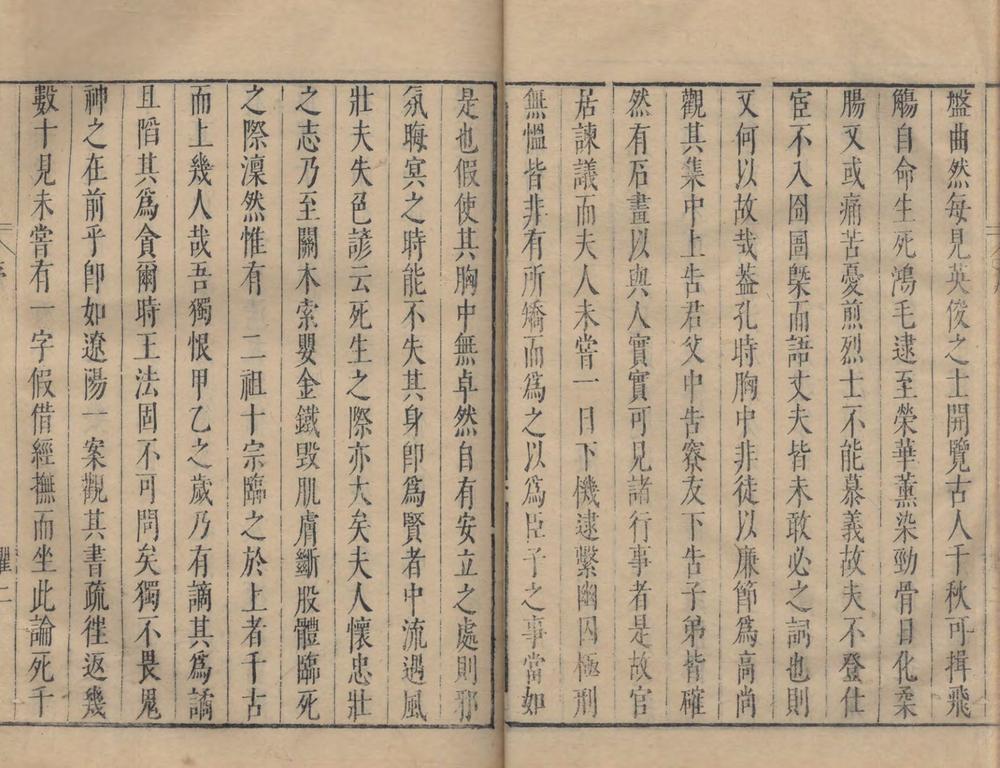 盤曲然每見英俊之士開覽古人千秋可揖飛
觴自命生死鴻毛逮至榮華薰染勁骨日化柔
腸又或痛苦憂煎烈士不能慕義故夫不登仕
宦不入囹圄槩而語丈夫皆未敢必之詞也則
又何以故哉葢孔時胸中非徒以廉節爲高尚
觀其集中上告君父中告寮友下告子弟皆確
然有石畫以與人實實可見諸行事者是故官
居諫議而夫人未嘗一日下機逮繫幽囚極刑
無慍皆非有所矯而爲之以爲臣子之事當如
是也假使其胸中無卓然自有安立之處則邪
氛晦㝠之時能不失其身卽爲賢者中流遇風
壯夫失色諺云死生之際亦大矣夫人懷忠壯
之志乃至關木索嬰金鐵毀肌膚斷股體臨死
之際凜然惟有 二祖十宗臨之於上者千古
而上幾人哉吾獨恨甲乙之歲乃有謫其爲譎
且䧟其爲貪爾時王法固不可問矣獨不畏鬼
神之在前乎卽如遼陽一案觀其書疏徃返幾
數十見未嘗有一字假借經撫而坐此論死千
序
二